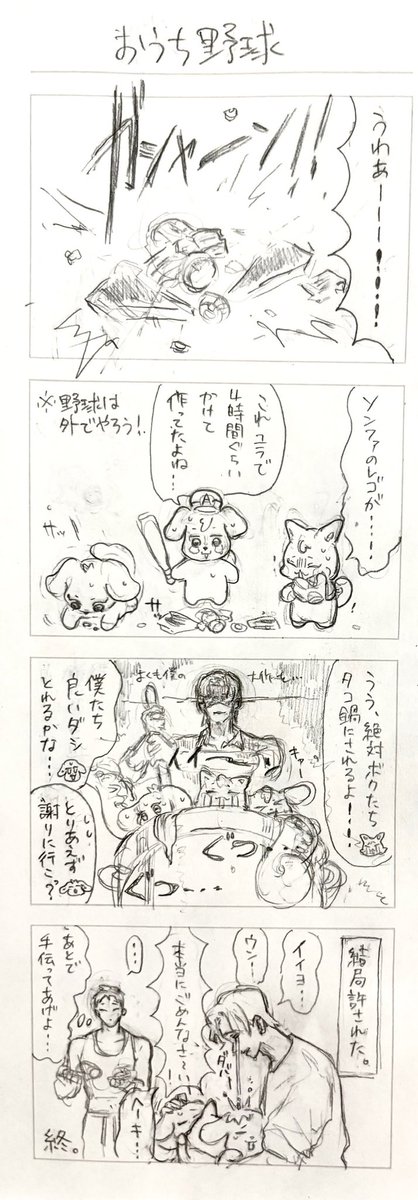 おうち野球
うわぁーーー!!!!
ガシャーン!!
ソンファのレゴが……!
これユラで
4時間ぐらい
かけて
作ってたよね…!
※野球は
外でやろう!
サッ
サッ
うぅ、絶対ボクたち
タコ鍋にされるよ!…
よくも僕の
キァー
僕たち
良いダシ
とれるかな…
とりあえず
謝りに行こ?
ぐつ
ぐつ…
結局許された。
イイヨ…
ウン…
ダバー
本当にごめんなさ〜い
…
あとで
手伝ってあげよ…
終。